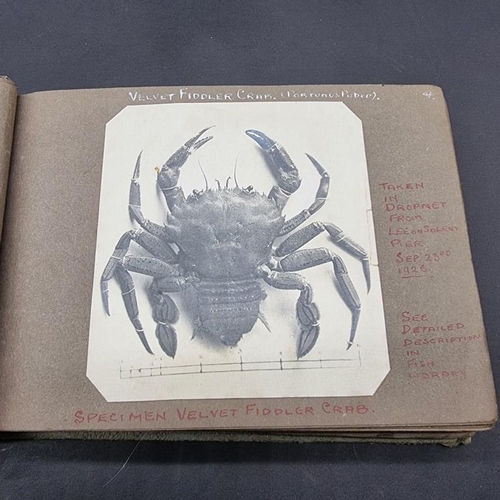 VELVET FIDDLER CRAB. (PORTUNUS PUBER).
4.
TAKEN
IN
DROPNET
FROM
LEE ON SOLENT
PIER.
SEP. 23RD
1926.
SEE
DETAILED
DESCRIPTION
IN
FISH
LIBRARY
SPECIMEN VELVET FIDDLER CRAB.